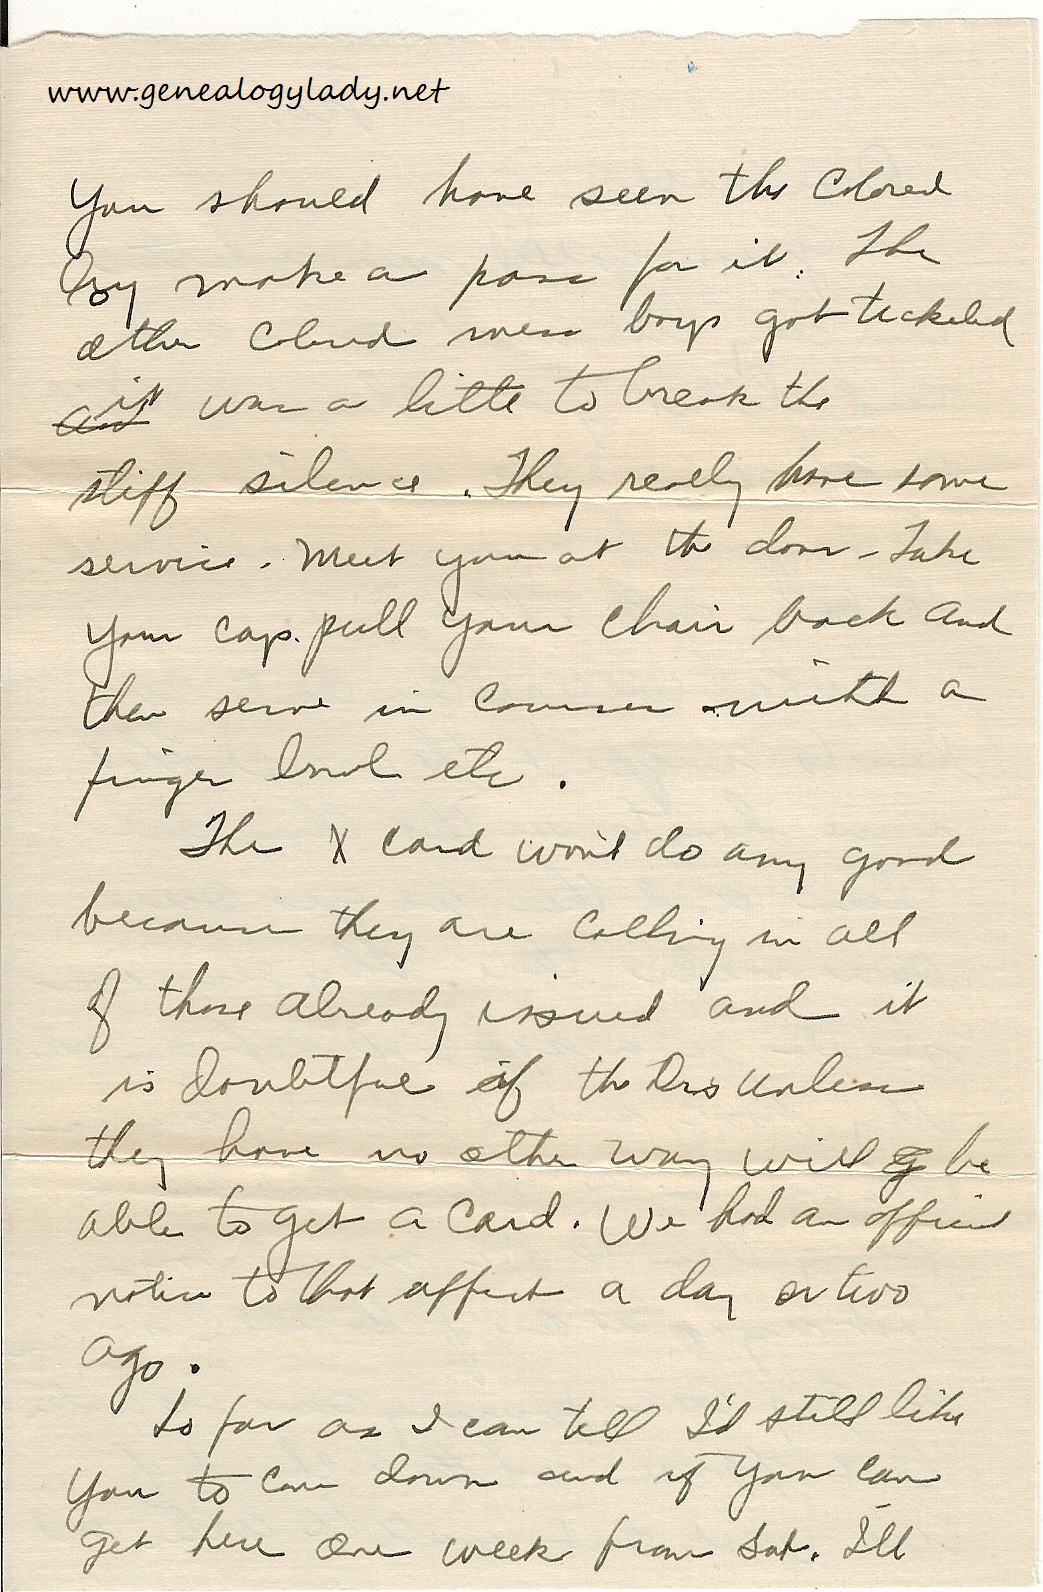 www.genealogylady.net
You should have seen the Colored
boy make a pass for it. The
other Colored mess boys got tickeled
and it was a little to break the
stiff silence. They really have some
service. Meet you at the door - Take
your cap. pull your chair back and
then serve in courses with a
finger bowl etc.
The X card won't do any good
because they are calling in all
of those already issued and it
is doubtful if the Drs unless
they have no other way will be
able to get a card. We had an official
notice to that affect a day or two
ago.
So far as I can tell I'd still like
you to come down and if you can
get here one week from Sat. I'll